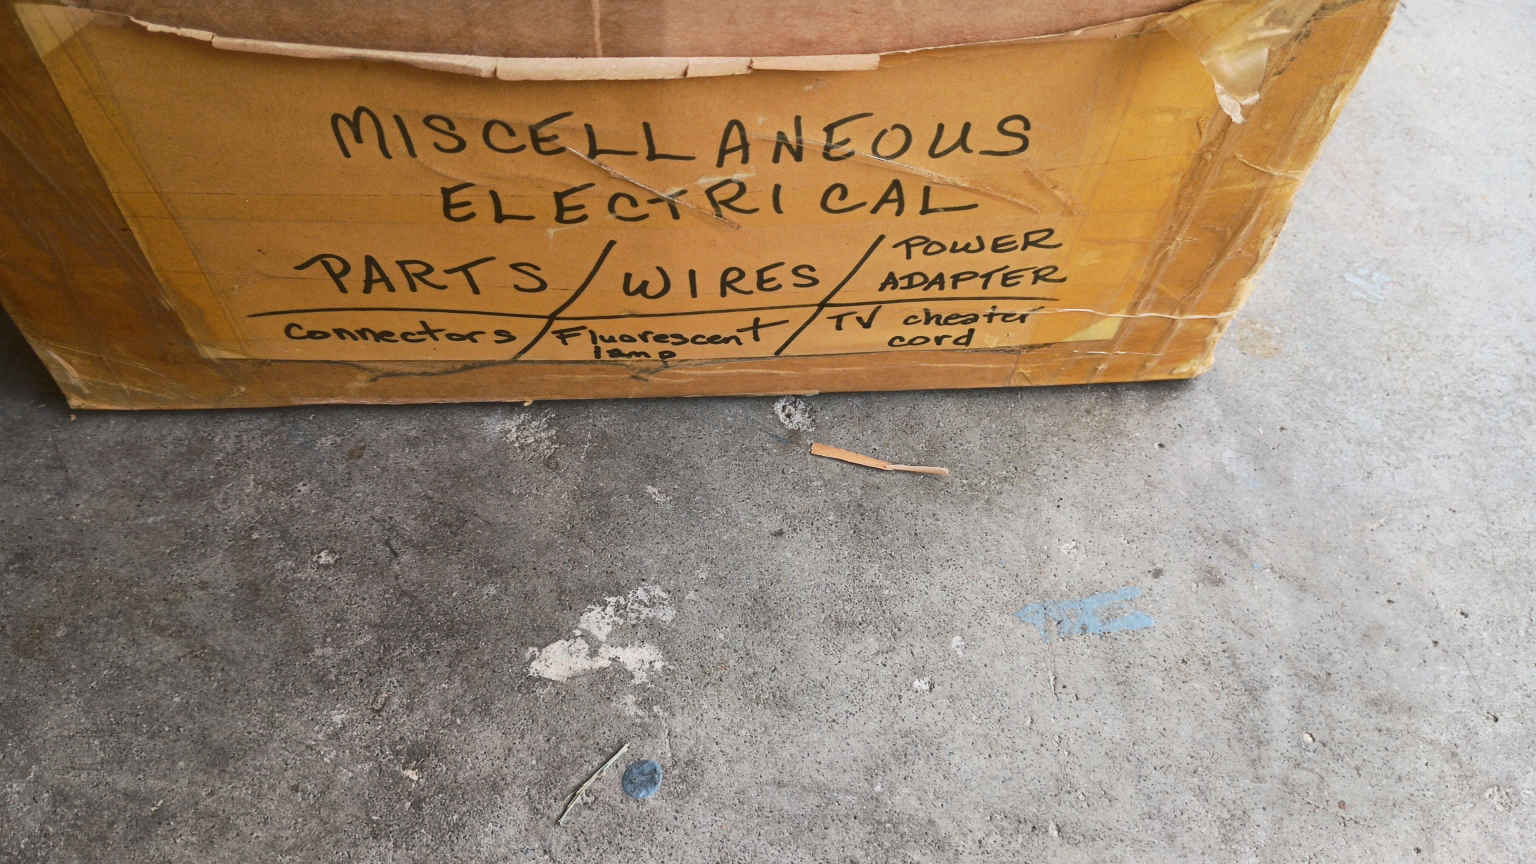 MISCELLANEOUS
ELECTRICAL
PARTS / WIRES / POWER ADAPTER
Connectors / Fluorescent lamp / TV cheater cord